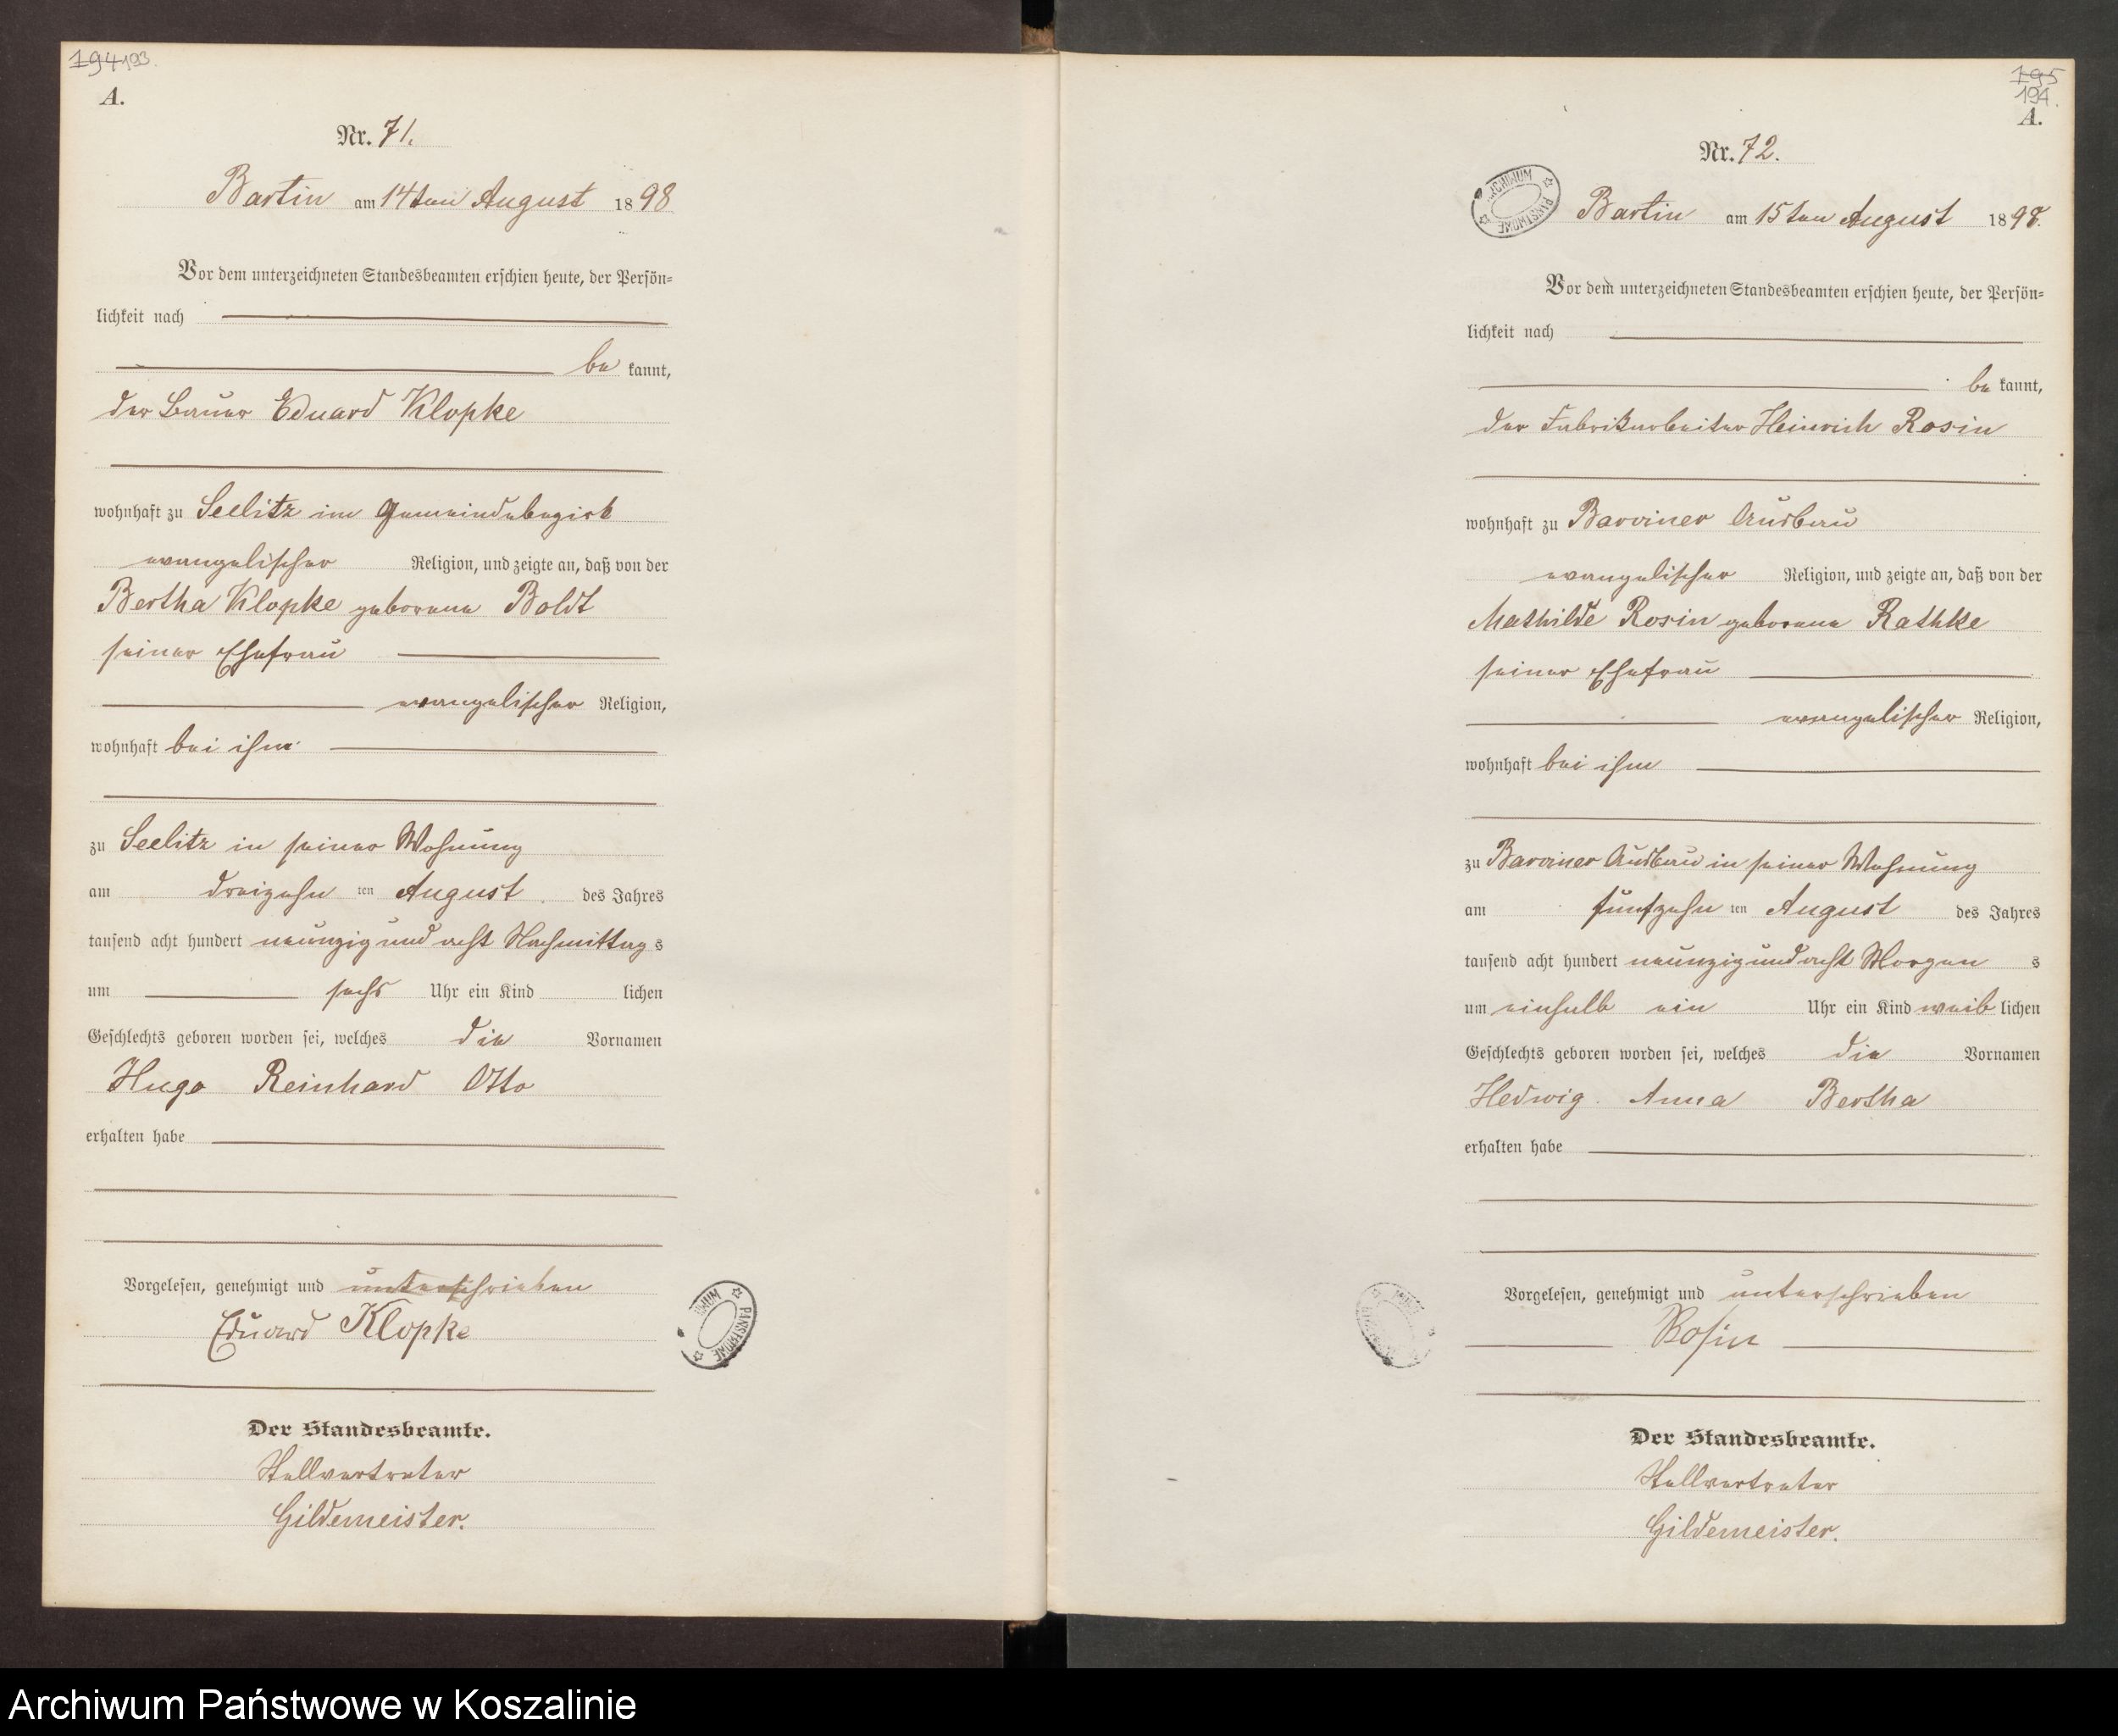 194 193.
A.
Nr. 71.
Bartin am 14ten August 1898
Vor dem unterzeichneten Standesbeamten erschien heute, der Persön=
lichkeit nach
be kannt,
der Bauer Eduard Klopke
wohnhaft zu Seelitz im Gemeindebezirk
evangelischer Religion, und zeigte an, daß von der
Bertha Klopke geborene Boldt
seiner Ehefrau
evangelischer Religion,
wohnhaft bei ihm
zu Seelitz in seiner Wohnung
am dreizehn ten August des Jahres
tausend acht hundert neunzig und acht Nachmittag s
um sechs Uhr ein Kind lichen
Geschlechts geboren worden sei, welches die Vornamen
Hugo Reinhard Otto
erhalten habe
Vorgelesen, genehmigt und unterschrieben
Eduard Klopke
Der Standesbeamte.
Stellvertreter
Gildemeister.
ARCHIWUM PAŃSTWOWE
195
194.
A.
Nr. 72.
ARCHIWUM PAŃSTWOWE
Bartin am 15ten August 1898.
Vor dem unterzeichneten Standesbeamten erschien heute, der Persön=
lichkeit nach
be kannt,
der Fabrikarbeiter Heinrich Rosin
wohnhaft zu Barviner Ausbau
evangelischer Religion, und zeigte an, daß von der
Mathilde Rosin geborene Rathke
seiner Ehefrau
evangelischer Religion,
wohnhaft bei ihm
zu Barviner Ausbau in seiner Wohnung
am fünfzehn ten August des Jahres
tausend acht hundert neunzig und acht Morgen s
um einhalb ein Uhr ein Kind weib lichen
Geschlechts geboren worden sei, welches die Vornamen
Hedwig Anna Bertha
erhalten habe
Vorgelesen, genehmigt und unterschrieben
Rosin
Der Standesbeamte.
Stellvertreter
Gildemeister.
Archiwum Państwowe w Koszalinie